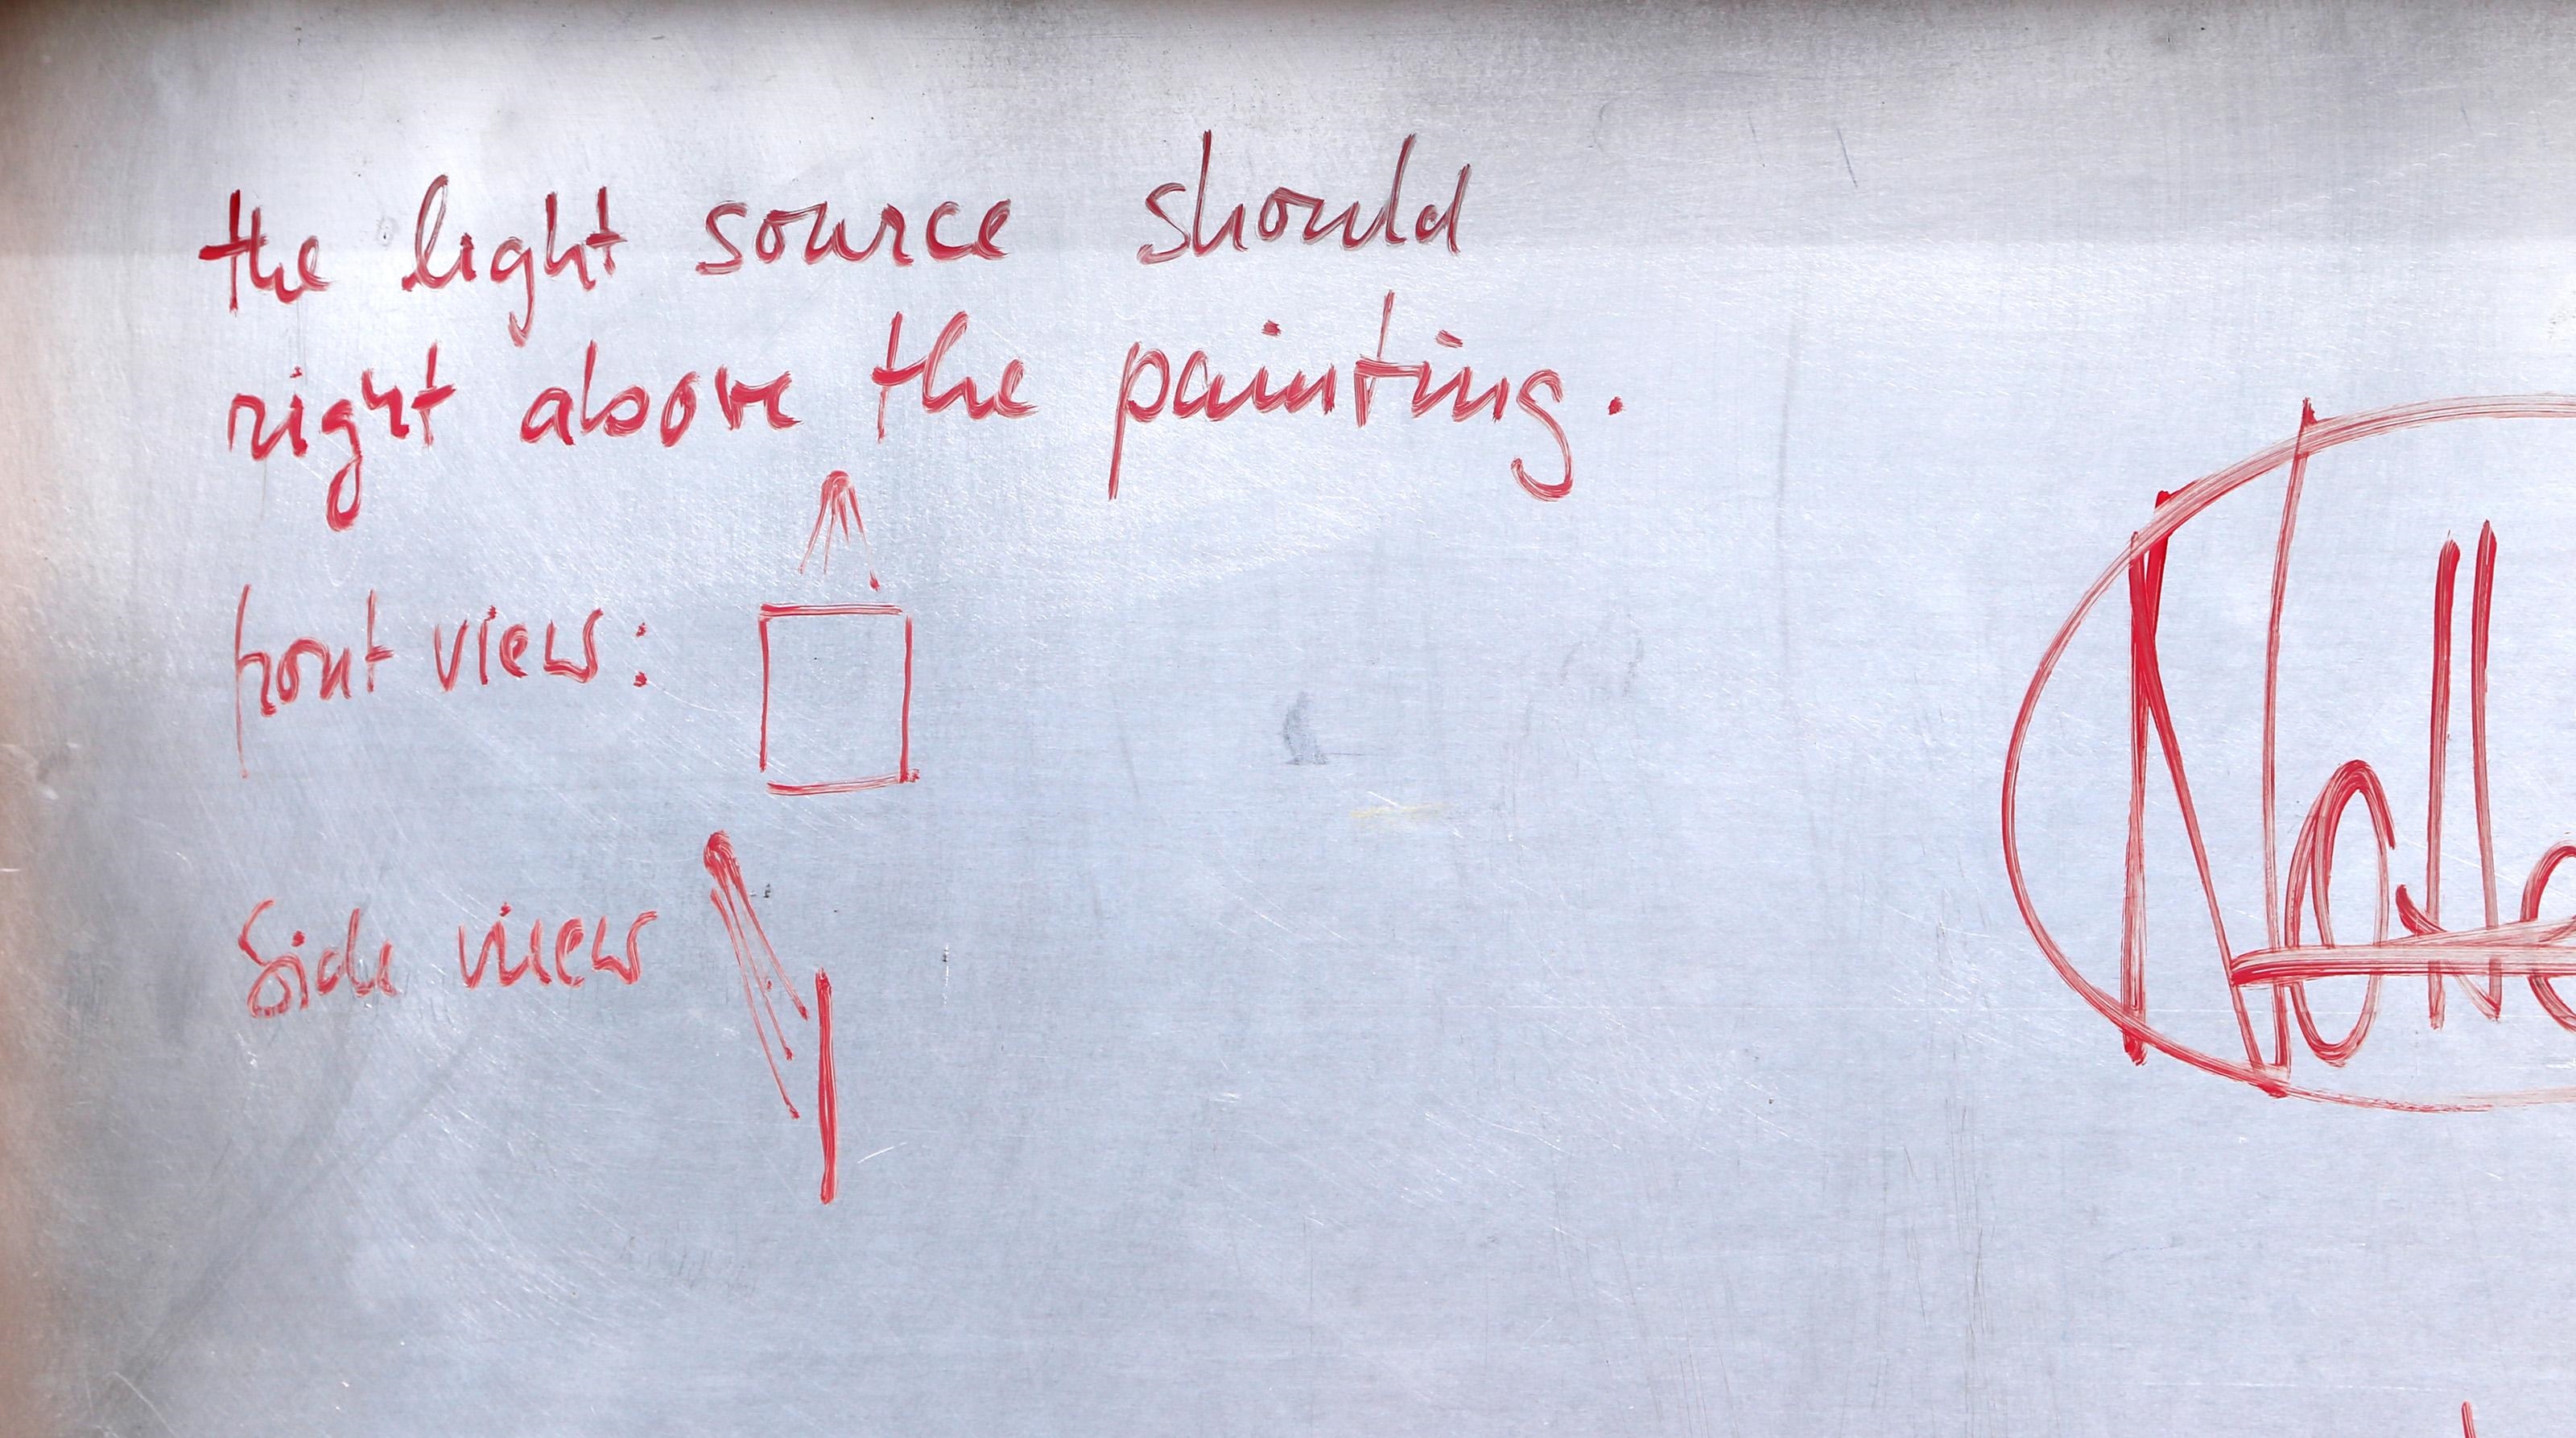 the light source should
right above the painting.
front view:
Side view